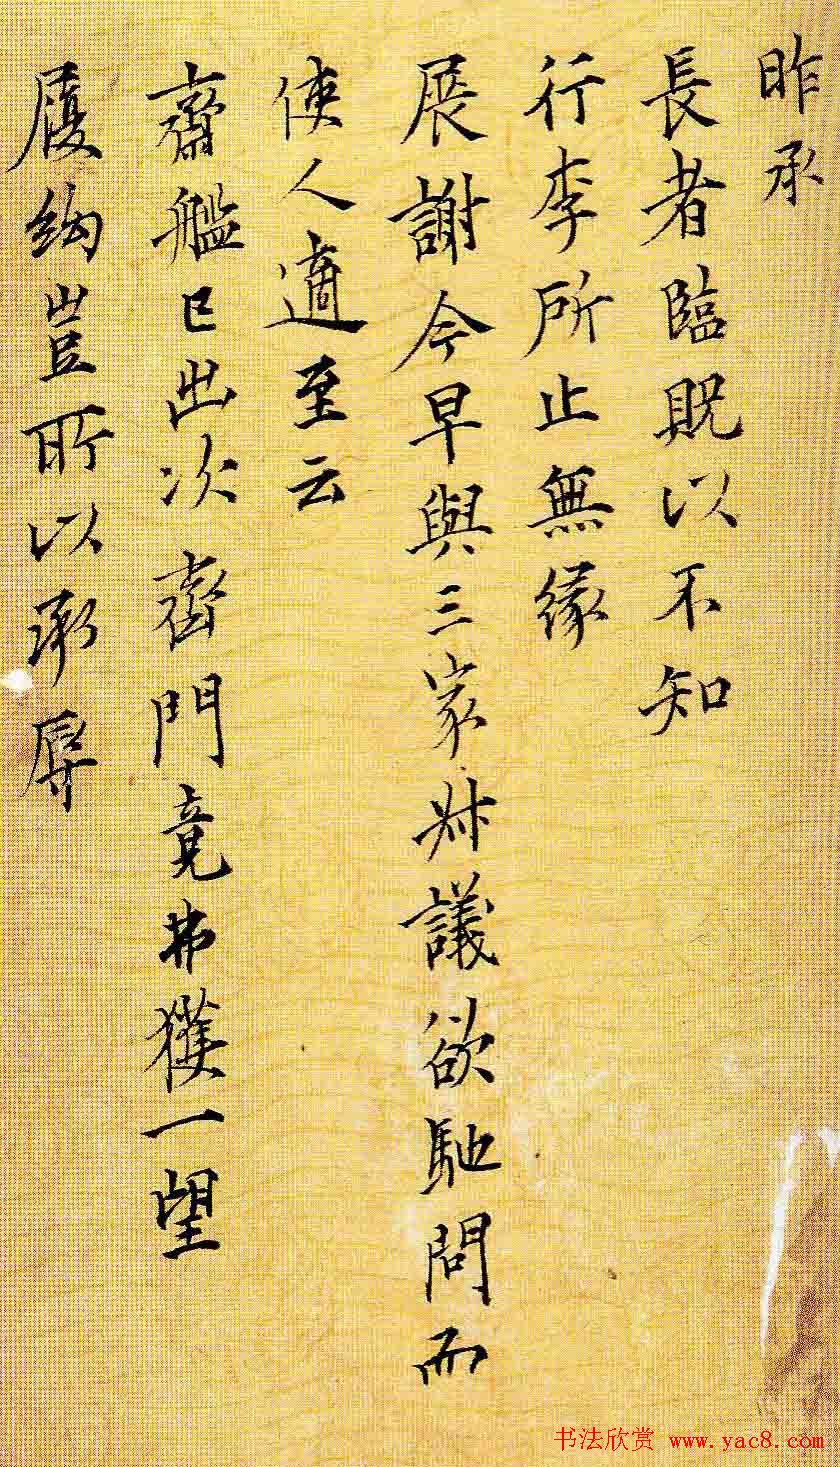 昨承
長者臨貺以不知
行李所止無緣
展謝今早與三家叔議欲馳問而
使人適至云
齋艦已出次齊門竟弗獲一望
履絢豈所以承辱
书法欣赏 www.yac8.com